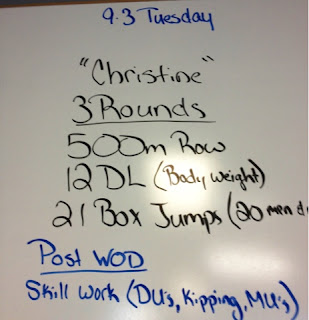 9.3 Tuesday
"Christine"
3 Rounds
500m Row
12 DL (Body weight)
21 Box Jumps (20 men
Post WOD
Skill Work (DU's, Kipping, MU's)